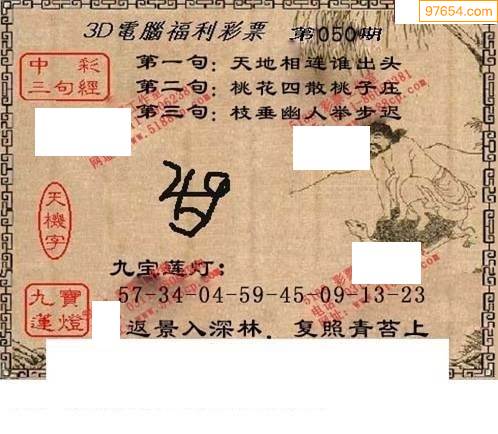 97654.com
3D電腦福利彩票 第050期
中彩三句經
第一句:天地相连谁出头
第二句:桃花四散桃子庄
第三句:枝垂幽人举步迟
天機字
九宝莲灯:
57-34-04-59-45-09-13-23
九寶蓮燈
返景入深林.复照青苔上